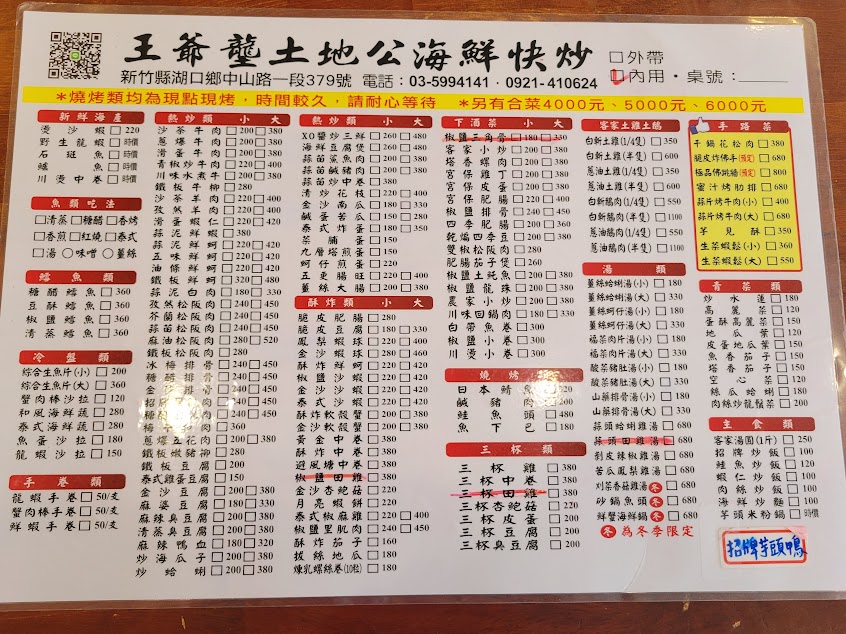 王爺壟土地公海鮮快炒
□外帶
□內用・桌號：
新竹縣湖口鄉中山路一段379號 電話：03-5994141・0921-410624
*燒烤類均為現點現烤，時間較久，請耐心等待 *另有合菜4000元、5000元、6000元
新鮮海產
燙沙蝦□220
野生龍蝦□時價
石斑魚□時價
鱸魚□時價
川燙中卷□時價
魚類吃法
□清蒸□糖醋□香烤
□香煎□紅燒□泰式
□湯○味噌○薑絲
鱈魚類
糖醋鱈魚□360
豆酥鱈魚□360
椒鹽鱈魚□360
清蒸鱈魚□360
冷盤類
綜合生魚片(小)□200
綜合生魚片(大)□360
蟹肉棒沙拉□120
和風海鮮蔬□280
泰式海鮮蔬□280
魚蛋沙拉□150
龍蝦沙拉□150
手卷類
龍蝦手卷□50/支
蟹肉棒手卷□50/支
鮮蝦手卷□50/支
熱炒類 小 大
沙茶牛肉□200□380
蔥爆牛肉□200□380
滑蛋牛肉□200□380
青椒炒牛肉□220□400
川味水煮牛□220□400
鐵板牛柳□280
沙茶羊肉□220□400
孜然羊肉□220□400
滑蛋蝦仁□220□420
蒜泥蝦□380
蒜泥鮮蚵□220□420
五味鮮蚵□220□420
油條鮮蚵□220□420
鐵板鮮蚵□320□480
蒜泥白肉□180□330
孜然松阪肉□240□450
芥蘭松阪肉□240□450
蒜苗松阪肉□240□450
麻油松阪肉□280□520
鐵板松阪肉□280
冰梅排骨□240□450
糖醋排骨□240□450
□240□450
□240□450
梅干扣肉□360
蔥爆五花肉□200□380
鐵板嫩豬柳□280
鐵板豆腐□200
泰式雞蛋豆腐□150
金沙豆腐□200□380
麻婆豆腐□180□330
麻辣臭豆腐□200□380
清蒸臭豆腐□200□380
麻辣鴨血□180□320
炒海瓜子□200□380
炒蛤蜊□200□380
熱炒類 小 大
XO醬炒三鮮□260□480
海鮮豆腐煲□200□380
蒜苗鯊魚肉□200□380
蒜苗鹹豬肉□200□380
蒜苗炒中卷□380
清炒花枝□220□400
金沙南瓜□180□330
鹹蛋苦瓜□150□280
泰式炸蛋□180□350
菜脯蛋□150
九層塔煎蛋□150
蚵仔煎蛋□220
五更腸旺□220□400
薑絲大腸□200□380
酥炸類 小 大
脆皮肥腸□380
脆皮豆腐□180□330
鳳梨蝦球□220□400
金沙蝦球□240□460
酥炸鮮蚵□220□420
椒鹽沙蝦□220□420
金沙沙蝦□220□420
泰式沙蝦□220□420
酥炸軟殼蟹□200□380
金沙軟殼蟹□200□380
黃金中卷□380
酥炸中卷□380
避風塘中卷□380
椒鹽田雞□380
金沙杏鮑菇□220
月亮蝦餅□220
泰式椒麻雞□220□400
椒鹽里肌肉□240□450
酥炸茄子□160
拔絲地瓜□180
煉乳螺絲卷(10粒)□180
下酒菜 小 大
椒鹽三角骨□180□330
客家小炒□200□380
塔香螺肉□200□380
宮保雞丁□200□380
宮保皮蛋□200□380
宮保肥腸□220□400
椒鹽排骨□240□450
四季肥腸□220□400
乾煸四季豆□200□380
雙椒松阪肉□280
肥腸茄子煲□260
椒鹽土魠魚□200□380
椒鹽龍珠□200□380
農家小炒□200□380
川味回鍋肉□180□330
白帶魚卷□300
椒鹽小卷□300
川燙小卷□300
燒烤類
日本鯖魚□220
鹹豬肉□200
鮭魚頭□480
魚下巴□180
三杯類
三杯雞□380
三杯中卷□380
三杯田雞□380
三杯杏鮑菇□220
三杯皮蛋□200
三杯豆腐□200
三杯臭豆腐□200
客家土雞土鵝
白斬土雞(1/4隻)□350
白斬土雞(半隻)□600
蔥油土雞(1/4隻)□350
蔥油土雞(半隻)□600
白斬鵝肉(1/4隻)□550
白斬鵝肉(半隻)□1100
蔥油鵝肉(1/4隻)□550
蔥油鵝肉(半隻)□1100
湯類
薑絲蛤蜊湯(小)□180
薑絲蛤蜊湯(大)□330
薑絲蚵仔湯(小)□180
薑絲蚵仔湯(大)□330
福菜肉片湯(小)□180
福菜肉片湯(大)□330
酸菜豬肚湯(小)□180
酸菜豬肚湯(大)□330
山藥排骨湯(小)□180
山藥排骨湯(大)□330
蒜頭蛤蜊雞湯□680
蒜頭田雞湯□680
剝皮辣椒雞湯□680
苦瓜鳳梨雞湯□680
刈菜香菇雞湯冬□680
砂鍋魚頭冬□680
鮮蟹海鮮鍋冬□680
冬為冬季限定
手路菜
干鍋花松肉□380
脆皮炸佛手(預定)□680
極品佛跳牆(預定)□800
蜜汁烤肋排□680
蒜片烤牛肉(小)□400
蒜片烤牛肉(大)□680
芋見酥□350
生菜蝦鬆(小)□360
生菜蝦鬆(大)□550
青菜類
炒水蓮□180
高麗菜□120
蛋酥高麗菜□150
地瓜葉□120
皮蛋地瓜葉□150
魚香茄子□150
塔香茄子□150
空心菜□120
絲瓜蛤蜊□180
肉絲炒龍鬚菜□200
主食類
客家湯圓(1斤)□250
招牌炒飯□100
鮭魚炒飯□120
蝦仁炒飯□100
肉絲炒飯□100
海鮮炒麵□100
芋頭米粉鍋□時價
招牌芋頭鴨